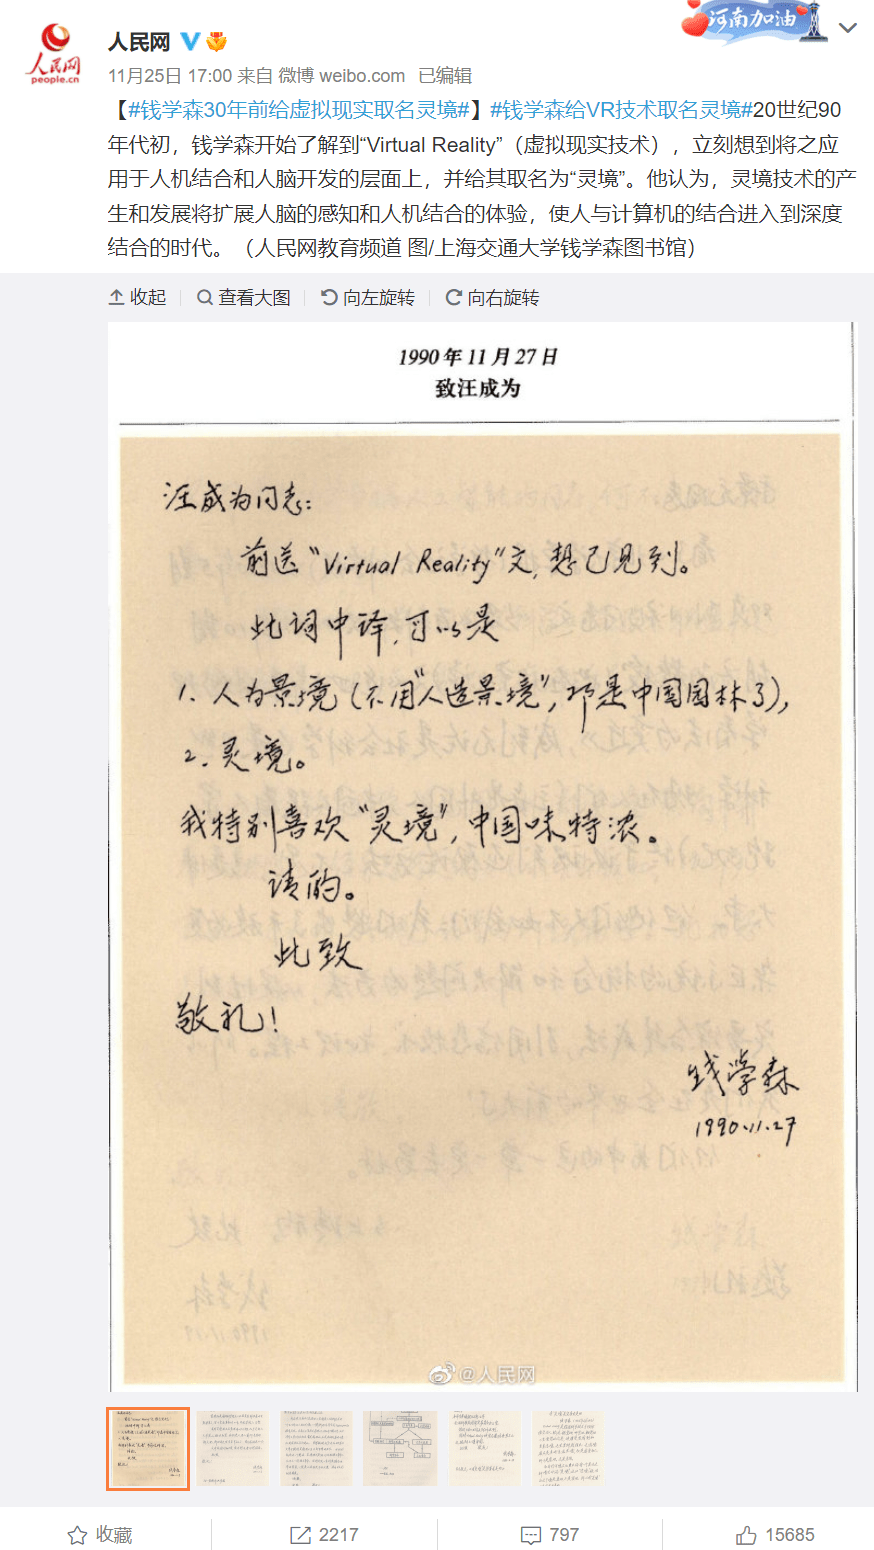 河南加油
人民网
people.cn
人民网
11月25日 17:00 来自 微博 weibo.com 已编辑
【#钱学森30年前给虚拟现实取名灵境#】#钱学森给VR技术取名灵境#20世纪90
年代初，钱学森开始了解到“Virtual Reality”（虚拟现实技术），立刻想到将之应
用于人机结合和人脑开发的层面上，并给其取名为“灵境”。他认为，灵境技术的产
生和发展将扩展人脑的感知和人机结合的体验，使人与计算机的结合进入到深度
结合的时代。（人民网教育频道 图/上海交通大学钱学森图书馆）
收起 查看大图 向左旋转 向右旋转
1990年11月27日
致汪成为
汪成为同志：
前送“Virtual Reality”文，想已见到。
此词中译，可以是
1. 人为景境（不用“人造景境”，那是中国园林了），
2. 灵境。
我特别喜欢“灵境”，中国味特浓。
请酌。
此致
敬礼！
钱学森
1990.11.27
@人民网
收藏 2217 797 15685